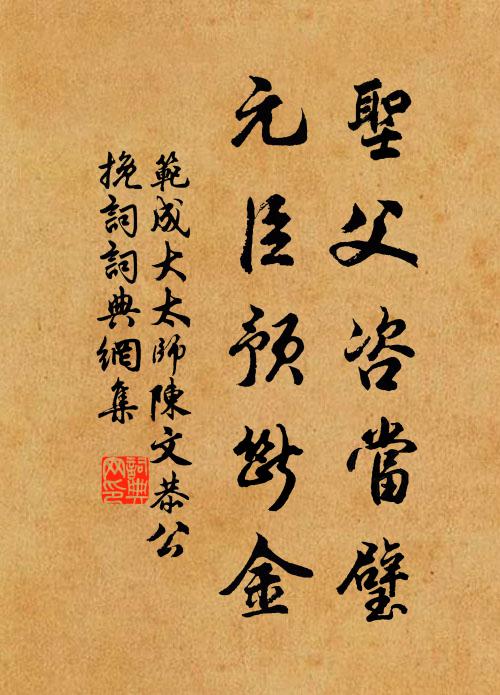 聖父咨當璧
元臣預斷金
範成大太師陳文恭公
挽詞詞典網集
詞典
网印